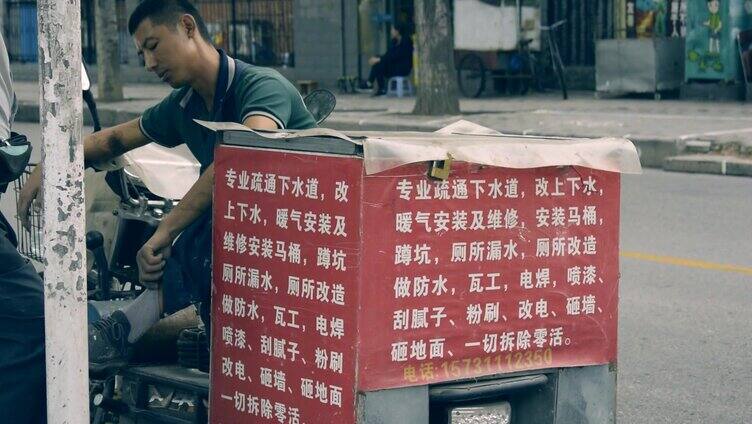 专业疏通下水道，改
上下水，暖气安装及
维修安装马桶，蹲坑
厕所漏水，厕所改造
做防水，瓦工，电焊
喷漆、刮腻子、粉刷
改电、砸墙、砸地面
一切拆除零活
专业疏通下水道，改上下水，
暖气安装及维修、安装马桶，
蹲坑，厕所漏水，厕所改造
做防水，瓦工，电焊，喷漆、
刮腻子、粉刷、改电、砸墙、
砸地面、一切拆除零活。
电话:15731112360